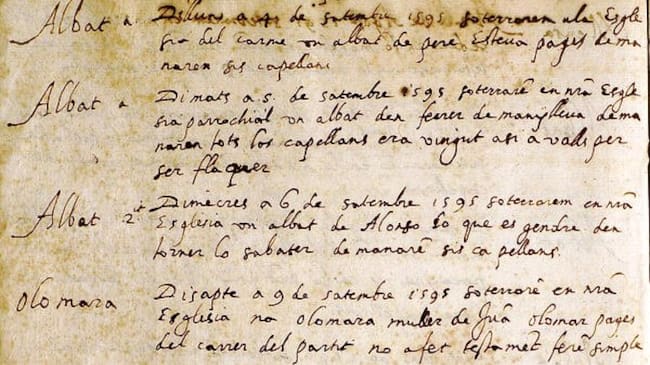 Albat a
Dilluns a 4 de satembre 1595 soterrarem a la Esgle
sia del carme un albat de pere Esteva pages dema
naren sis capellans
Albat a
Dimats a 5. de satembre 1595 soterrarē en nrā Esgle
sia parrochial un albat den ferrer de manlleu dema
naren tots los capellans era vingut asi a valls per
ser flaquer
Albat 2ᵗ
Dimecres a 6 de satembre 1595 soterrarem en nrā
Esglesia un albat de Alonso lo que es gendre den
torner lo sabater demanarē sis capellans.
olomara
Disapte a 9 de satembre 1595 soterrarē en nrā
Esglesia na olomara muller de Juā olomar pages
del carrer del partit no a fet testamēt ferē simple